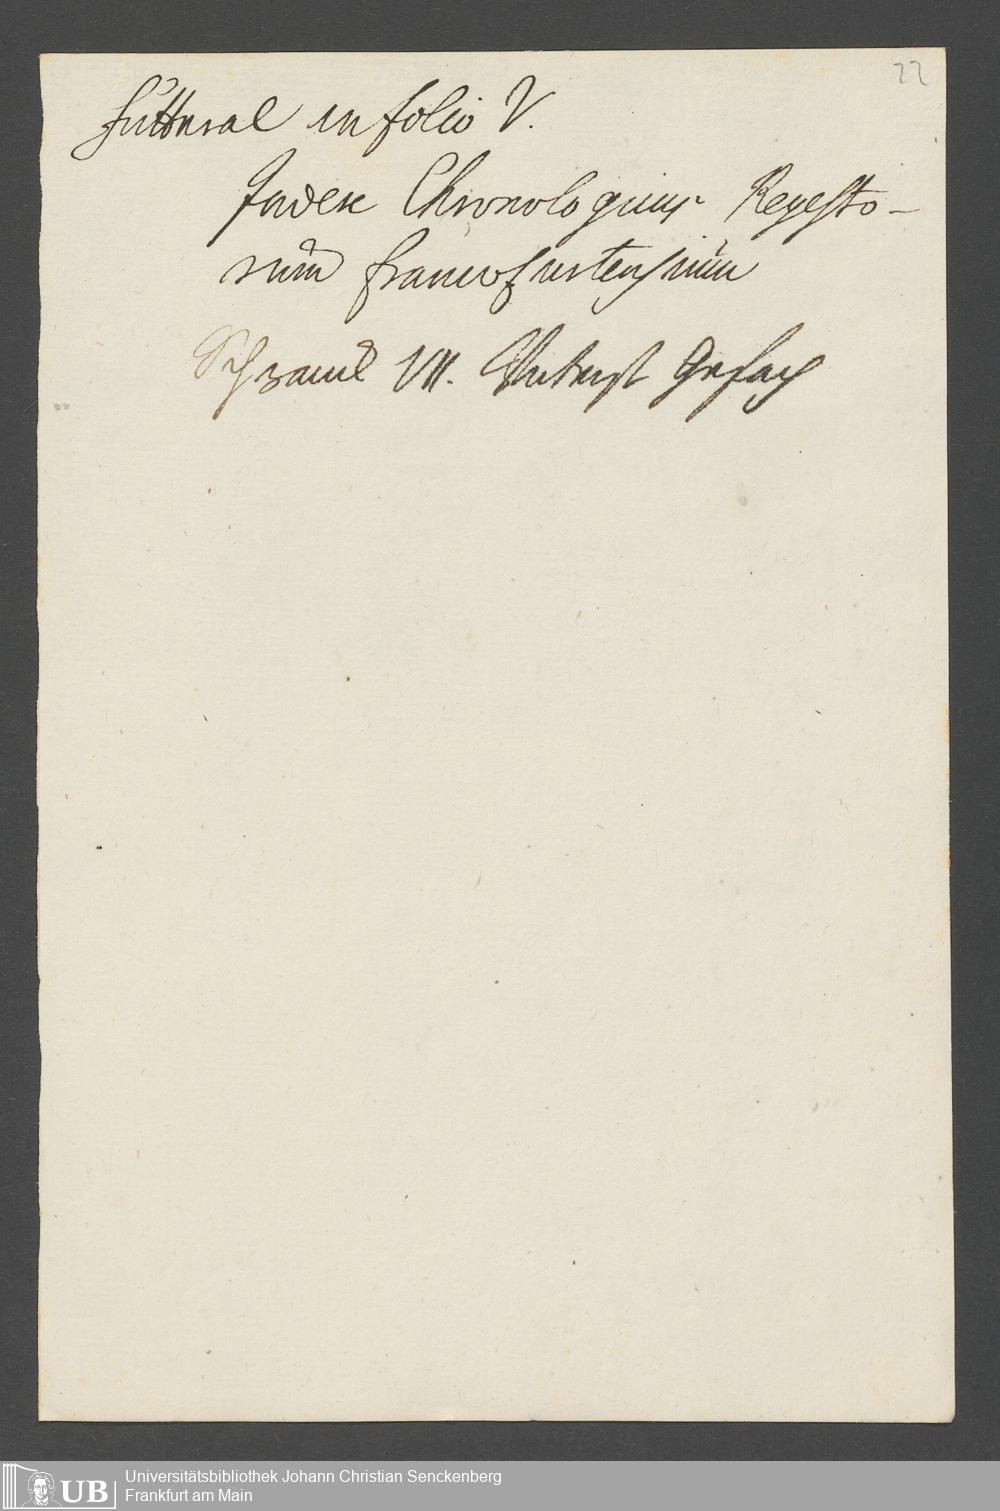 22
Futteral in folio V.
Index Chronologicus Regesto-
rum francofurtensium
Schranck VII. Unterst Gefach
UB
Universitätsbibliothek Johann Christian Senckenberg
Frankfurt am Main